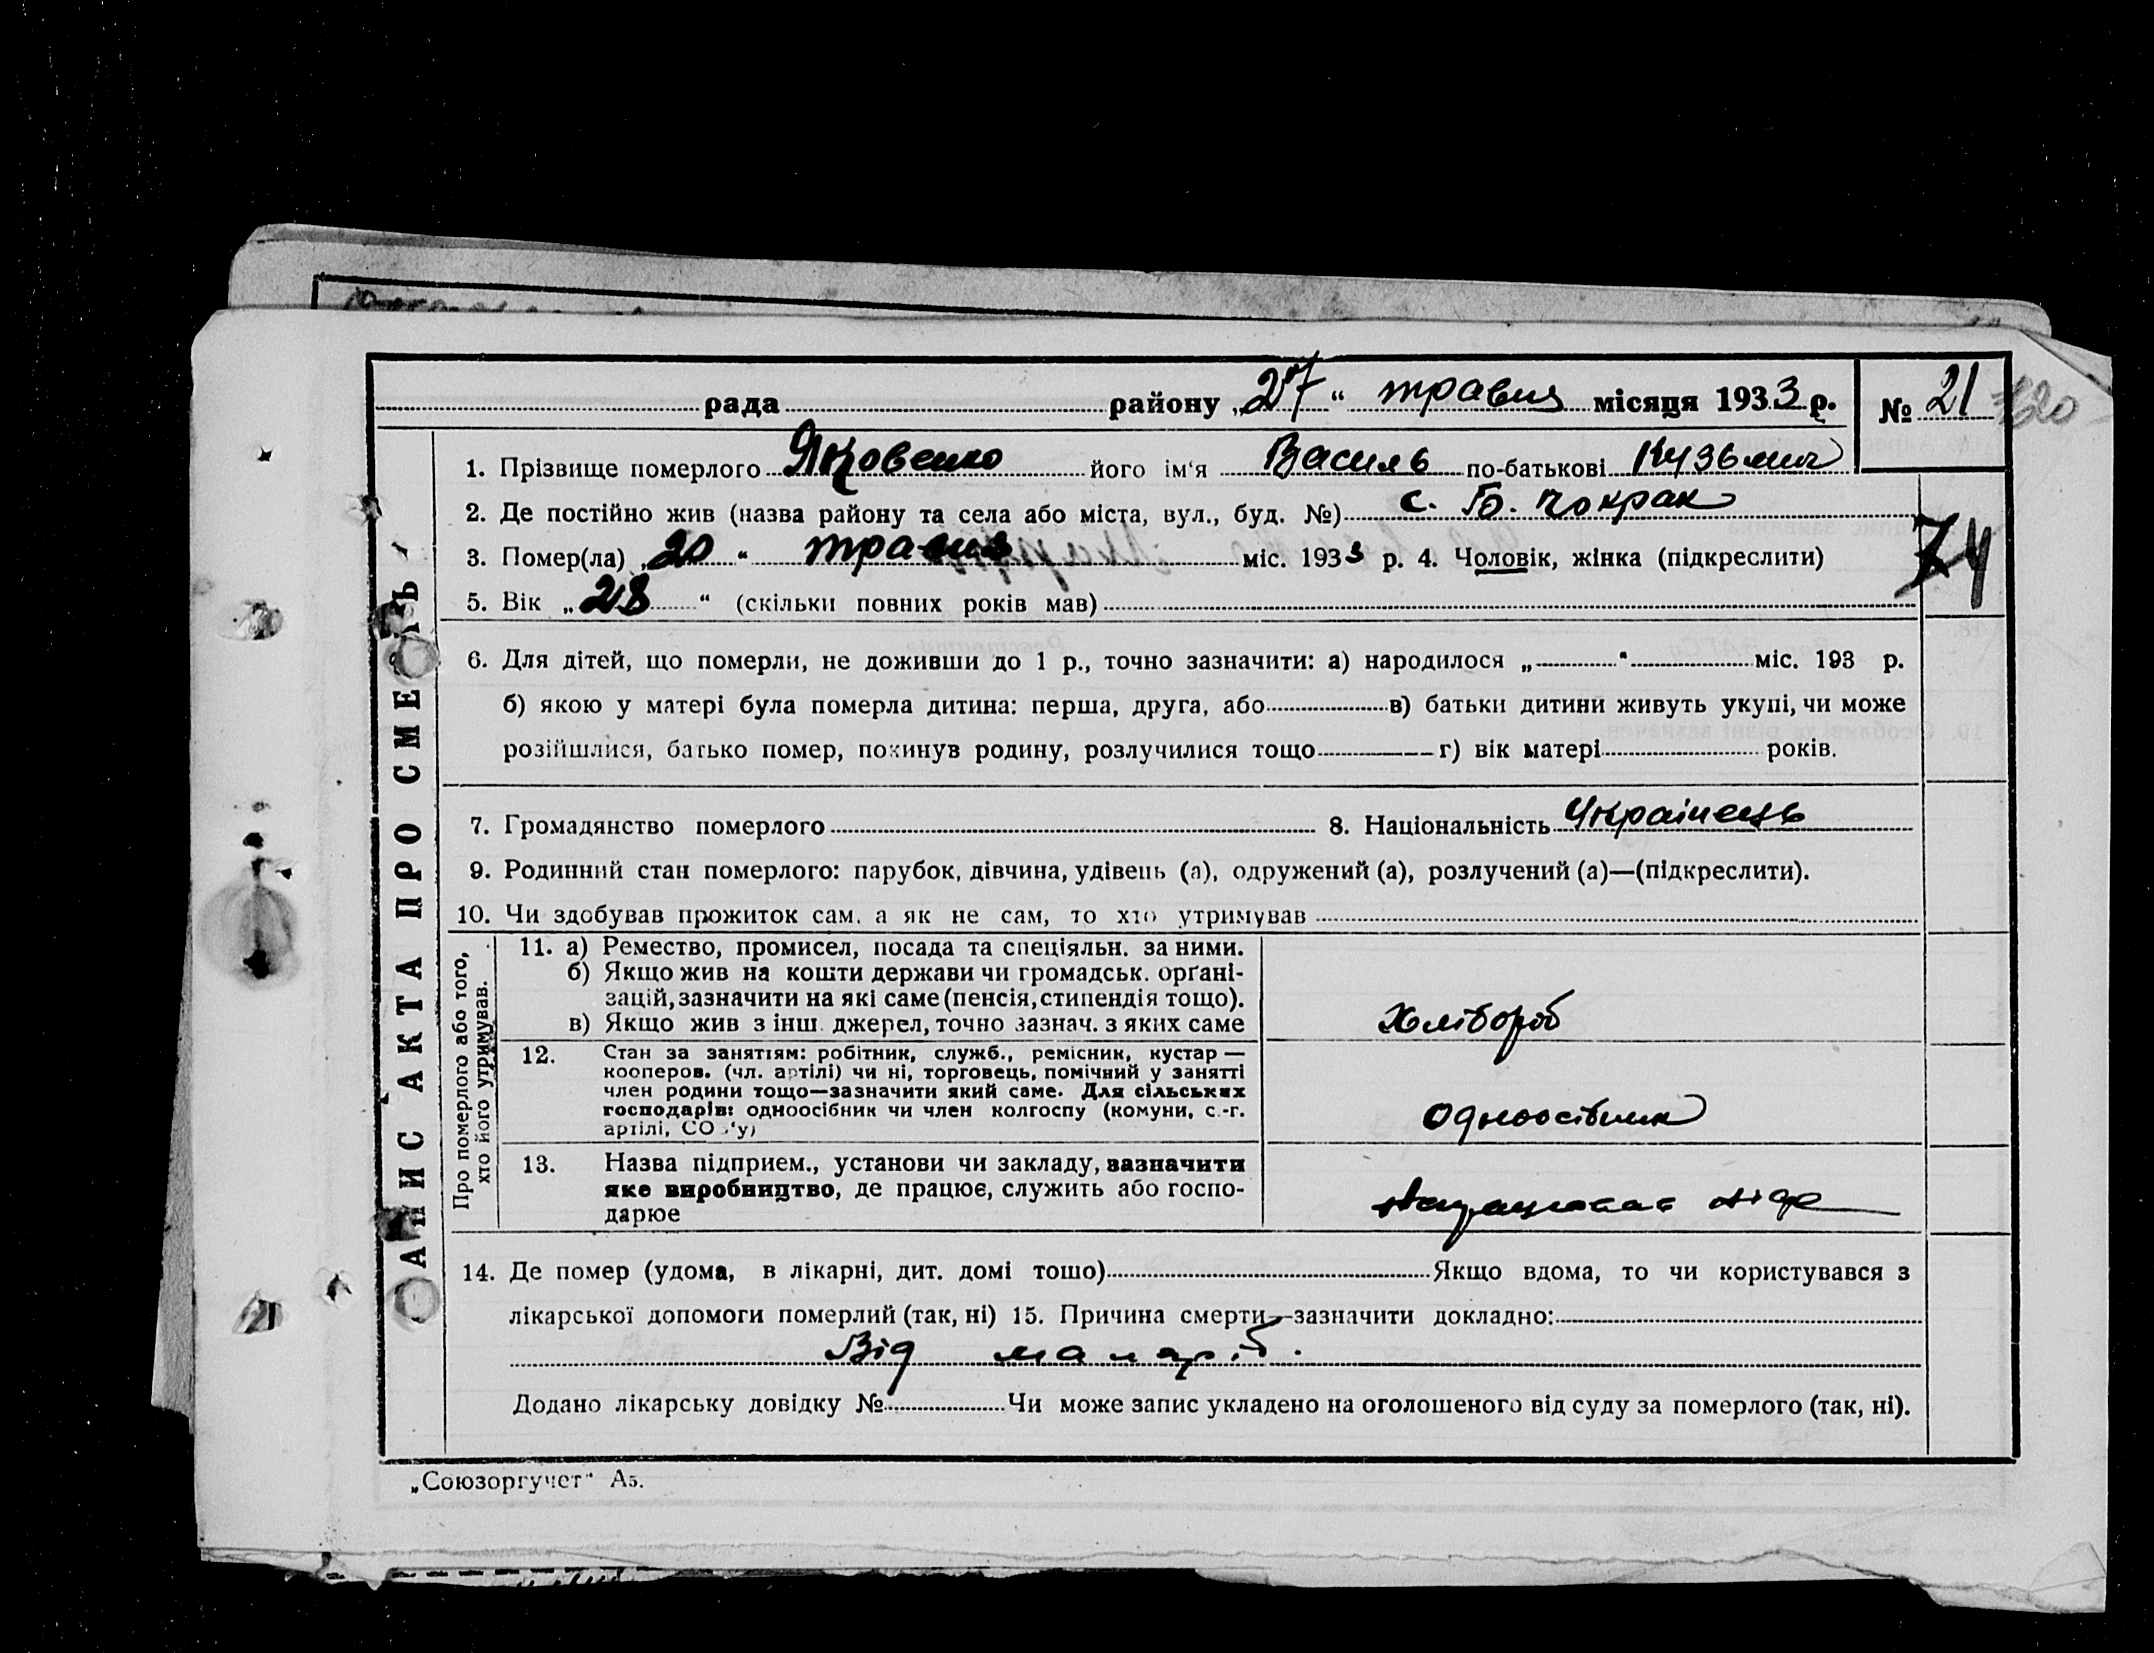 рада района „27“ травня місяця 1933 р. № 21
1. Прізвище померлого Яковенко його ім'я Василь по-батькові Кузьмич
2. Де постійно жив (назва району та села або міста, вул., буд. №) с. Б. Чокрак
3. Помер(ла) „20“ травня міс. 1933 р. 4. Чоловік, жінка (підкреслити)
74
5. Вік „28“ (скільки повних років мав)
6. Для дітей, що померли, не доживши до 1 р., точно зазначити: а) народилося „ “ міс. 193 р.
б) якою у матері була померла дитина: перша, друга, або в) батьки дитини живуть укупі, чи може
розійшлися, батько помер, покинув родину, розлучилися тощо г) вік матері років.
7. Громадянство померлого 8. Національність Українець
9. Родинний стан померлого: парубок, дівчина, удівець (а), одружений (а), розлучений (а)—(підкреслити).
10. Чи здобував прожиток сам, а як не сам, то хто утримував
Про померлого або того,
хто його утримував.
11. а) Ремество, промисел, посада та спеціяльн. за ними.
б) Якщо жив на кошти держави чи громадськ. орґані-
зацій, зазначити на які саме (пенсія, стипендія тощо).
в) Якщо жив з інш. джерел, точно зазнач. з яких саме
Хлібороб
12. Стан за заняттям: робітник, служб., ремісник, кустар —
кооперов. (чл. артілі) чи ні, торговець, помічний у занятті
член родини тощо—зазначити який саме. Для сільських
господарів: одноосібник чи член колгоспу (комуни, с.-г.
артілі, СО у)
Одноосібник
13. Назва підприєм., установи чи закладу, зазначити
яке виробництво, де працює, служить або госпо-
дарює
14. Де помер (удома, в лікарні, дит. домі тощо) Якщо вдома, то чи користувався з
лікарської допомоги померлий (так, ні) 15. Причина смерти—зазначити докладно:
Від малярії.
Додано лікарську довідку № Чи може запис укладено на оголошеного від суду за померлого (так, ні).
„Союзоргучет“ А5.
ЗАПИС АКТА ПРО СМЕРТЬ